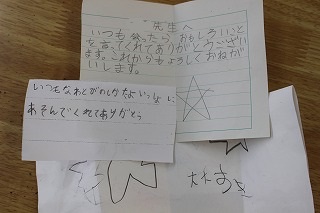 先生へ
いつも会ったらおもしろいこと
を言ってくれてありがとうござい
ます。これからもよろしくおねが
いします。
いつもなわとび
あそんでくれてありがとう
大木